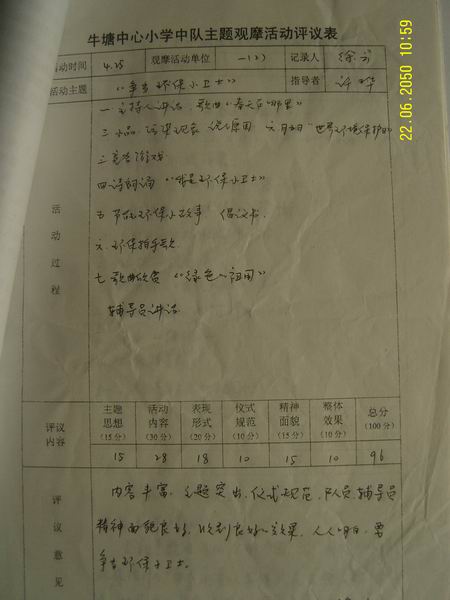 牛塘中心小学中队主题观摩活动评议表
活动时间 4.25 观摩活动单位 一(2) 记录人 徐
活动主题 “争当环保小卫士” 指导者 许
活动过程
一、主持人讲话、歌曲《春天在哪里》
二 小品 污染现象 说原因 六月五日“世界环境保护日
三 竞答游戏
四 诗朗诵 “我是环保小卫士”
五 环保小故事 倡议书
六、环保拍手歌
七、歌曲欣赏 《绿色的祖国》
辅导员讲话
评议内容
主题思想(15分) 活动内容(30分) 表现形式(20分) 仪式规范(10分) 精神面貌(15分) 整体效果(10分) 总分(100分)
15 28 18 10 15 10 96
评议意见
内容丰富,主题突出,仪式规范,队员、辅导员
精神面貌良好,收到良好的效果,人人 要
争当环保小卫士。
22.06.2050 10:59